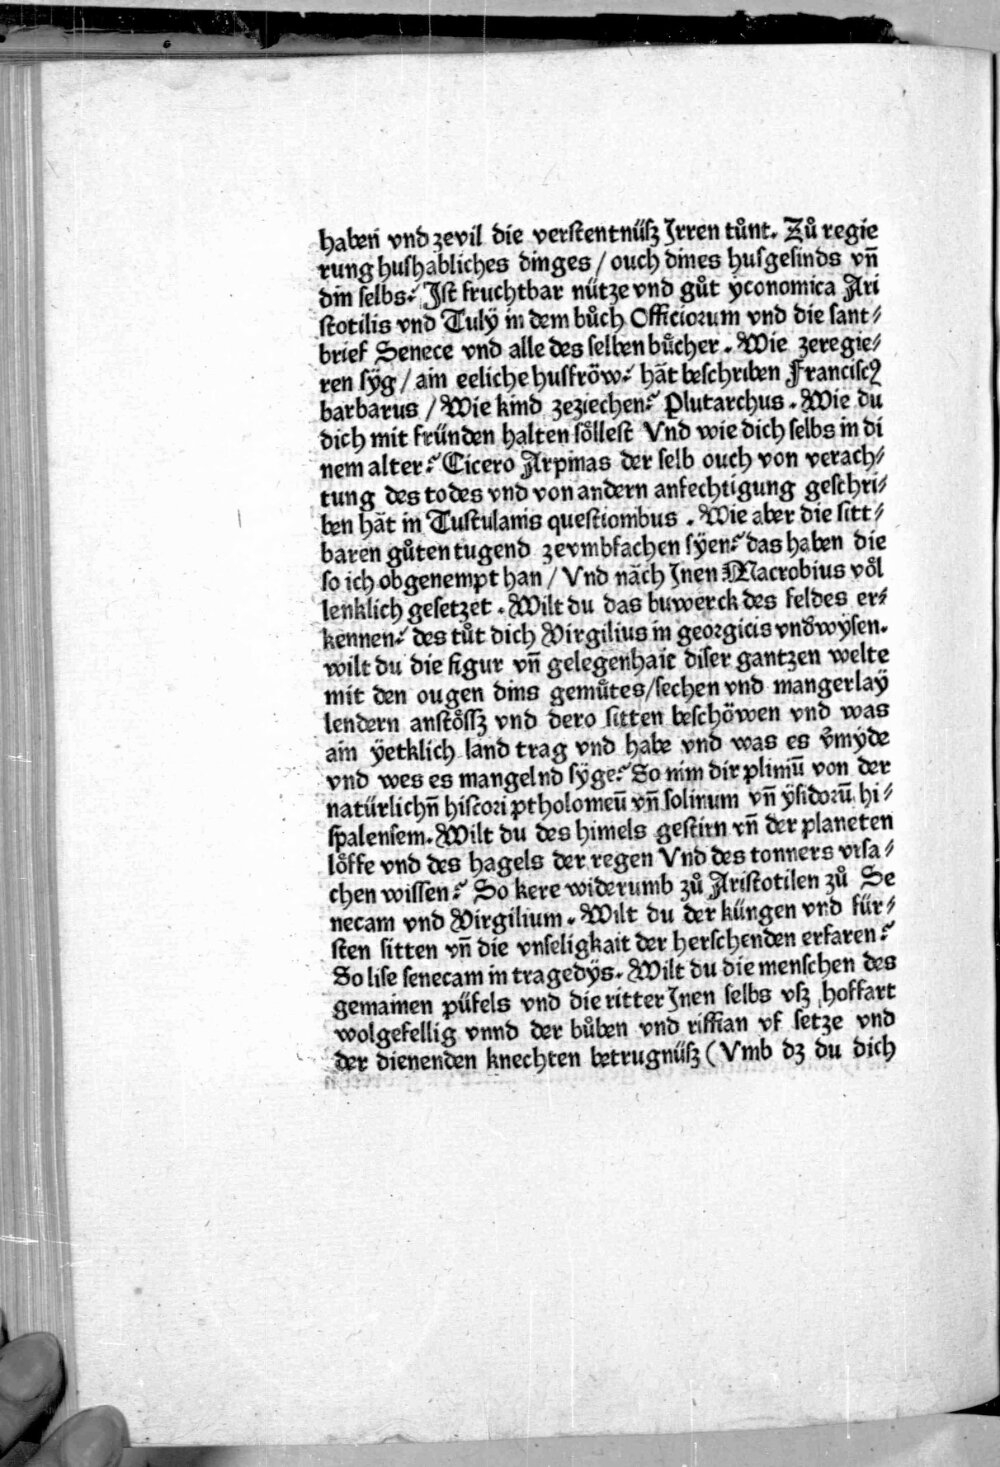 haben vnd zevil die verstentnüsz Jrren tůnt. Zů regie
rung hushabliches dinges / ouch dines husgesinds vn̄
din selbs? Jst fruchtbar nütze vnd gůt yconomica Ari
stotilis vnd Tulÿ in dem bůch Officiorum vnd die sant⸗
brief Senece vnd alle des selben bůcher. Wie zeregie⸗
ren sÿg / ain eeliche husfröw? hāt beschriben Franciscꝰ
barbarus / Wie kind zeziechen? Plutarchus. Wie du
dich mit fründen halten söllest Vnd wie dich selbs in di
nem alter? Cicero Arpinas der selb ouch von verach⸗
tung des todes vnd von andern anfechtigung geschri⸗
ben hāt in Tusculanis questionibus. Wie aber die sitt⸗
baren gůten tugend zevmbfachen sÿen? das haben die
so ich obgenempt han / Vnd nāch Jnen Macrobius vŏl
lenklich gesetzet. Wilt du das buwerck des feldes er⸗
kennen? des tůt dich Virgilius in georgicis vnd̄wÿsen.
wilt du die figur vn̄ gelegenhait diser gantzen welte
mit den ougen dins gemůtes/sechen vnd mangerlaÿ
lendern anstŏssz vnd dero sitten beschöwen vnd was
ain ÿetklich land trag vnd habe vnd was es v̄mÿde
vnd wes es mangelnd sÿge? So nim dir pliniū von der
natürlichn̄ histori ptholomeū vn̄ solinum vn̄ ÿsidorū hi⸗
spalensem. Wilt du des himels gestirn vn̄ der planeten
lŏffe vnd des hagels der regen Vnd des tonners vrsa⸗
chen wissen? So kere widerumb zů Aristotilen zů Se
necam vnd Virgilium. Wilt du der küngen vnd für⸗
sten sitten vn̄ die vnseligkait der herschenden erfaren?
So lise senecam in tragedÿs. Wilt du die menschen des
gemainen püfels vnd die ritter Jnen selbs vsz hoffart
wolgefellig vnnd der bůben vnd riffian vf setze vnd
der dienenden knechten betrugnüsz (Vmb dz du dich